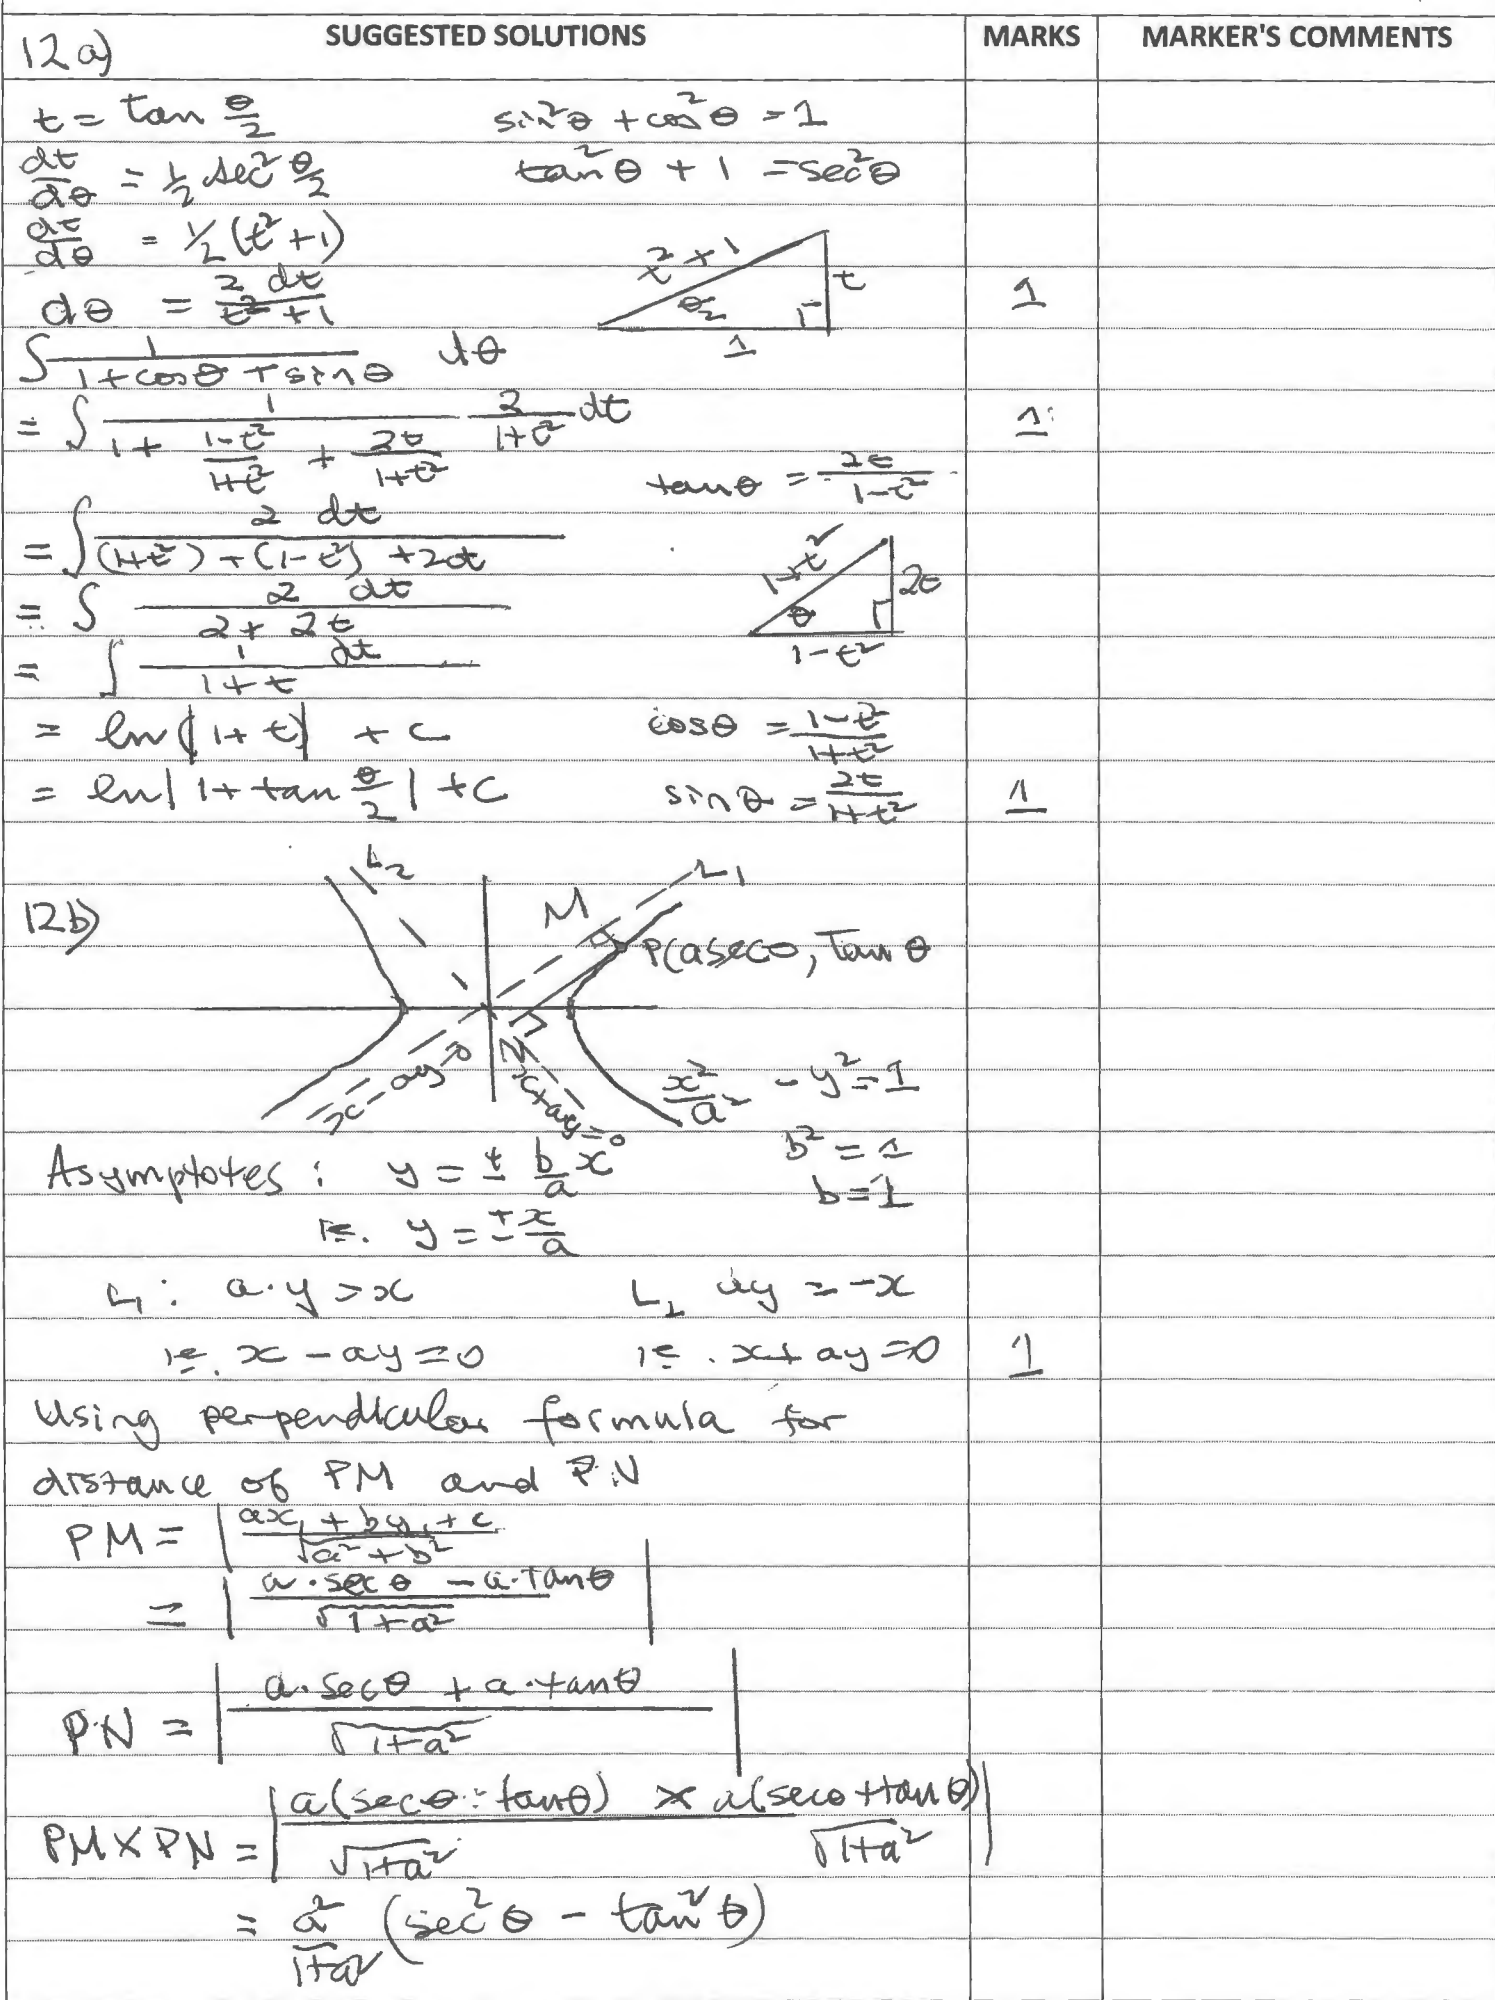 SUGGESTED SOLUTIONS MARKS MARKER'S COMMENTS
12a)
t = tan θ/2 sin²θ + cos²θ = 1
dt/dθ = 1/2 sec² θ/2 tan²θ + 1 = sec²θ
dt/dθ = 1/2 (t² + 1)
t² + 1 t
dθ = 2 dt/(t² + 1) θ/2 1 1
∫ 1/(1 + cosθ + sinθ) dθ
= ∫ 1/(1 + (1-t²)/(1+t²) + 2t/(1+t²)) 2/(1+t²) dt 1
tanθ = 2t/(1-t²)
= ∫ 2 dt/((1+t²) + (1-t²) + 2t)
1+t² 2t
= ∫ 2 dt/(2 + 2t) θ
1-t²
= ∫ 1 dt/(1 + t)
= ln|1 + t| + c cosθ = (1-t²)/(1+t²)
= ln|1 + tan θ/2| + C sinθ = 2t/(1+t²) 1
L2 L1
12b) M
P(a secθ, Tan θ
N
x - ay = 0 x + ay = 0 x²/a² - y² = 1
Asymptotes : y = ± b/a x b² = 1
b = 1
ie. y = ± x/a
L1 : a.y = x L2 ay = -x
ie. x - ay = 0 ie. x + ay = 0 1
Using perpendicular formula for
distance of PM and PN
PM = |(ax₁ + by₁ + c)/√(a² + b²)
= |(a.secθ - a.tanθ)/√(1 + a²)|
PN = |(a.secθ + a.tanθ)/√(1 + a²)|
PM X PN = |a(secθ - tanθ)/√(1+a²) × a(secθ + tanθ)/√(1+a²)|
= a²/(1+a²) (sec²θ - tan²θ)